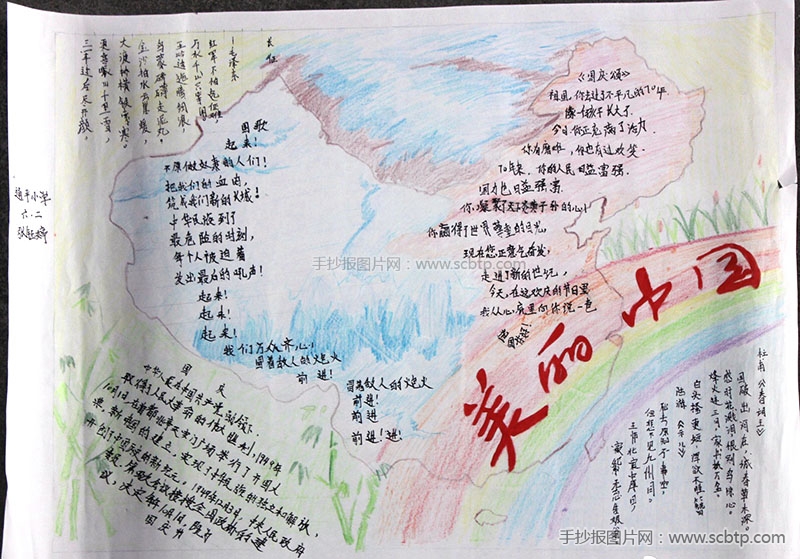 长征
—毛泽东
红军不怕远征难
万水千山只等闲
五岭逶迤腾细浪,
乌蒙磅礴走泥丸。
金沙 暖,
大渡桥横铁索寒。
更喜岷山千里雪,
三军过后尽开颜。
国歌
起来!
不愿做奴隶的人们!
把我们的血肉,
筑成我们新的长城!
中华民族到了
最危险的时刻,
每个人被迫着
发出最后的吼声!
起来!
起来!
起来!
我们万众齐心,
冒着敌人的炮火
前进!
冒着敌人的炮火
前进!
前进
前进!进!
《国庆颂》
祖国,你去过了不平凡的70年
像一个孩子长大了
今日你正充满了活力
你有磨难,你也有过欢笑
70年来,你的人民日益富强
国力也日益强富
你,凝聚了天下炎黄子孙的心
你赢得了世界 的目光
现在您正意气奋发,
走进了新的世纪,
今天,在这欢庆的节日里
我从心底里向你说一色
美丽中国
通平小学
六.二
国庆
中华人民在中国共产党
取得了人民大革命的伟大胜利,1949年
10月1日在首都北京天安门广场举行了开国大
典,新中国的建立,实现了中华民族的独立和解放,
开创了中国历史的新纪元。1949年12月3日,中央人民政府
委员会 会议接接全国政协的建
议,决定 10月1日,
国庆节
杜甫《春望》
国破 山河在,城春草木深。
感时花溅泪,恨别鸟惊心。
烽火连三月,家书抵万金。
白头搔更短,浑欲不胜簪
陆游《示儿》
死去原知万事空,
但悲不见九州同。
王师北定中原日,
家祭
手抄报图片网 www.scbtp.com
手抄报图片网：www.scbtp.com